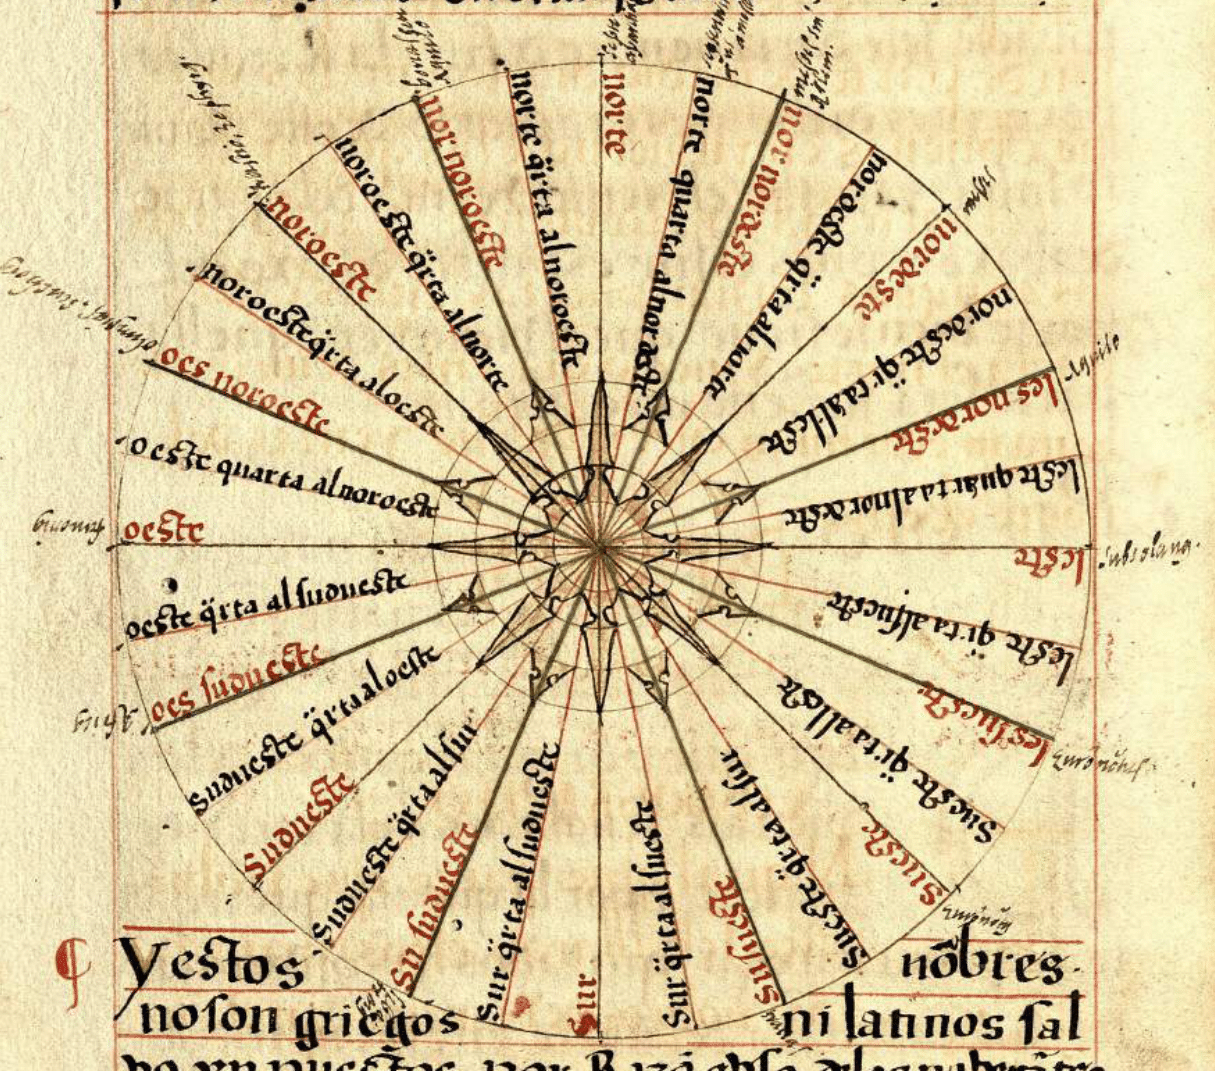 norte
norte quarta alnordeste
nornordeste
nordeste q̈rta alnorte
nordeste
nordeste q̈rta alleste
lesnordeste
leste quarta alnordeste
leste
leste q̈rta alsueste
lessueste
sueste q̈rta alleste
sueste
sueste q̈rta alsur
susueste
sur q̈rta alsueste
sur
sur q̈rta alsudueste
su sudueste
sudueste q̈rta alsur
sudueste
sudueste q̈rta aloeste
oes sudueste
oeste q̈rta al sudueste
oeste
oeste quarta alnoroeste
oes noroeste
noroeste q̈rta aloeste
noroeste
noroeste q̈rta alnorte
nornoroeste
norte q̈rta alnoroeste
Aquilo
subsolang.
¶ Yestos nõbres
noson griegos ni latinos sal